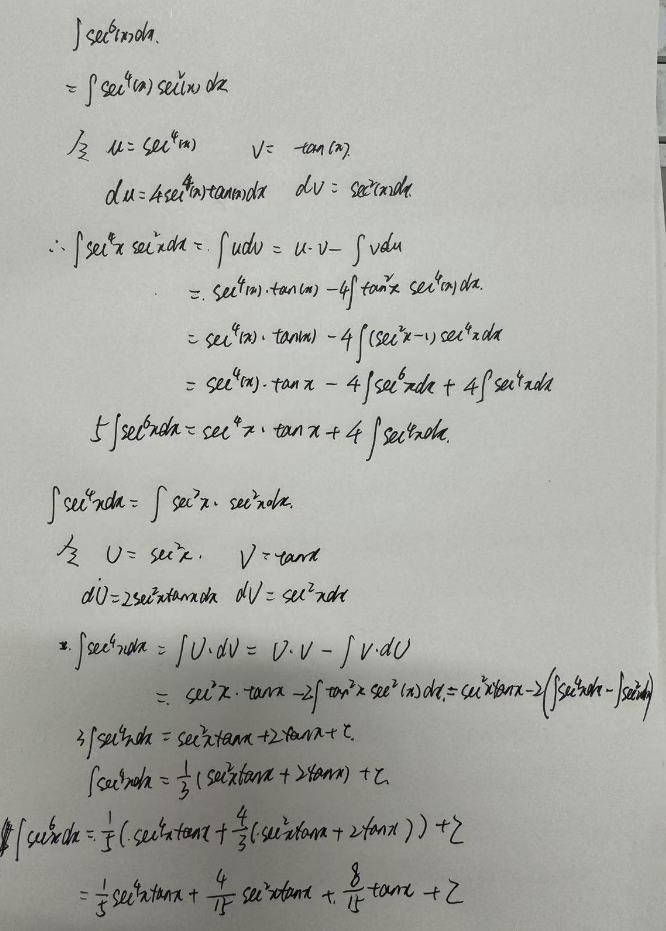 ∫ sec⁶(x)dx.
= ∫ sec⁴(x) sec²(x) dx
令 u = sec⁴(x) v = tan(x).
du = 4sec⁴(x)tan(x)dx dv = sec²(x)dx.
∴ ∫ sec⁴x sec²x dx = ∫ u dv = u·v − ∫ v du
= sec⁴(x)·tan(x) − 4∫ tan²x sec⁴(x)dx.
= sec⁴(x)·tan(x) − 4∫(sec²x−1)sec⁴x dx
= sec⁴(x)·tan x − 4∫sec⁶x dx + 4∫sec⁴x dx
5∫sec⁶x dx = sec⁴x·tan x + 4∫sec⁴x dx.
∫sec⁴x dx = ∫ sec²x · sec²x dx.
令 U = sec²x. V = tan x
dU = 2sec²x tan x dx dV = sec²x dx
∴ ∫sec⁴x dx = ∫U·dV = U·V − ∫V·dU
= sec²x·tan x − 2∫tan²x sec²(x)dx = sec²x tan x − 2(∫sec⁴x dx − ∫sec²x dx)
3∫sec⁴x dx = sec²x tan x + 2tan x + C.
∫sec⁴x dx = 1/3 (sec²x tan x + 2tan x) + C.
∫sec⁶x dx = 1/5 (sec⁴x tan x + 4/3 (sec²x tan x + 2tan x)) + C
= 1/5 sec⁴x tan x + 4/15 sec²x tan x + 8/15 tan x + C